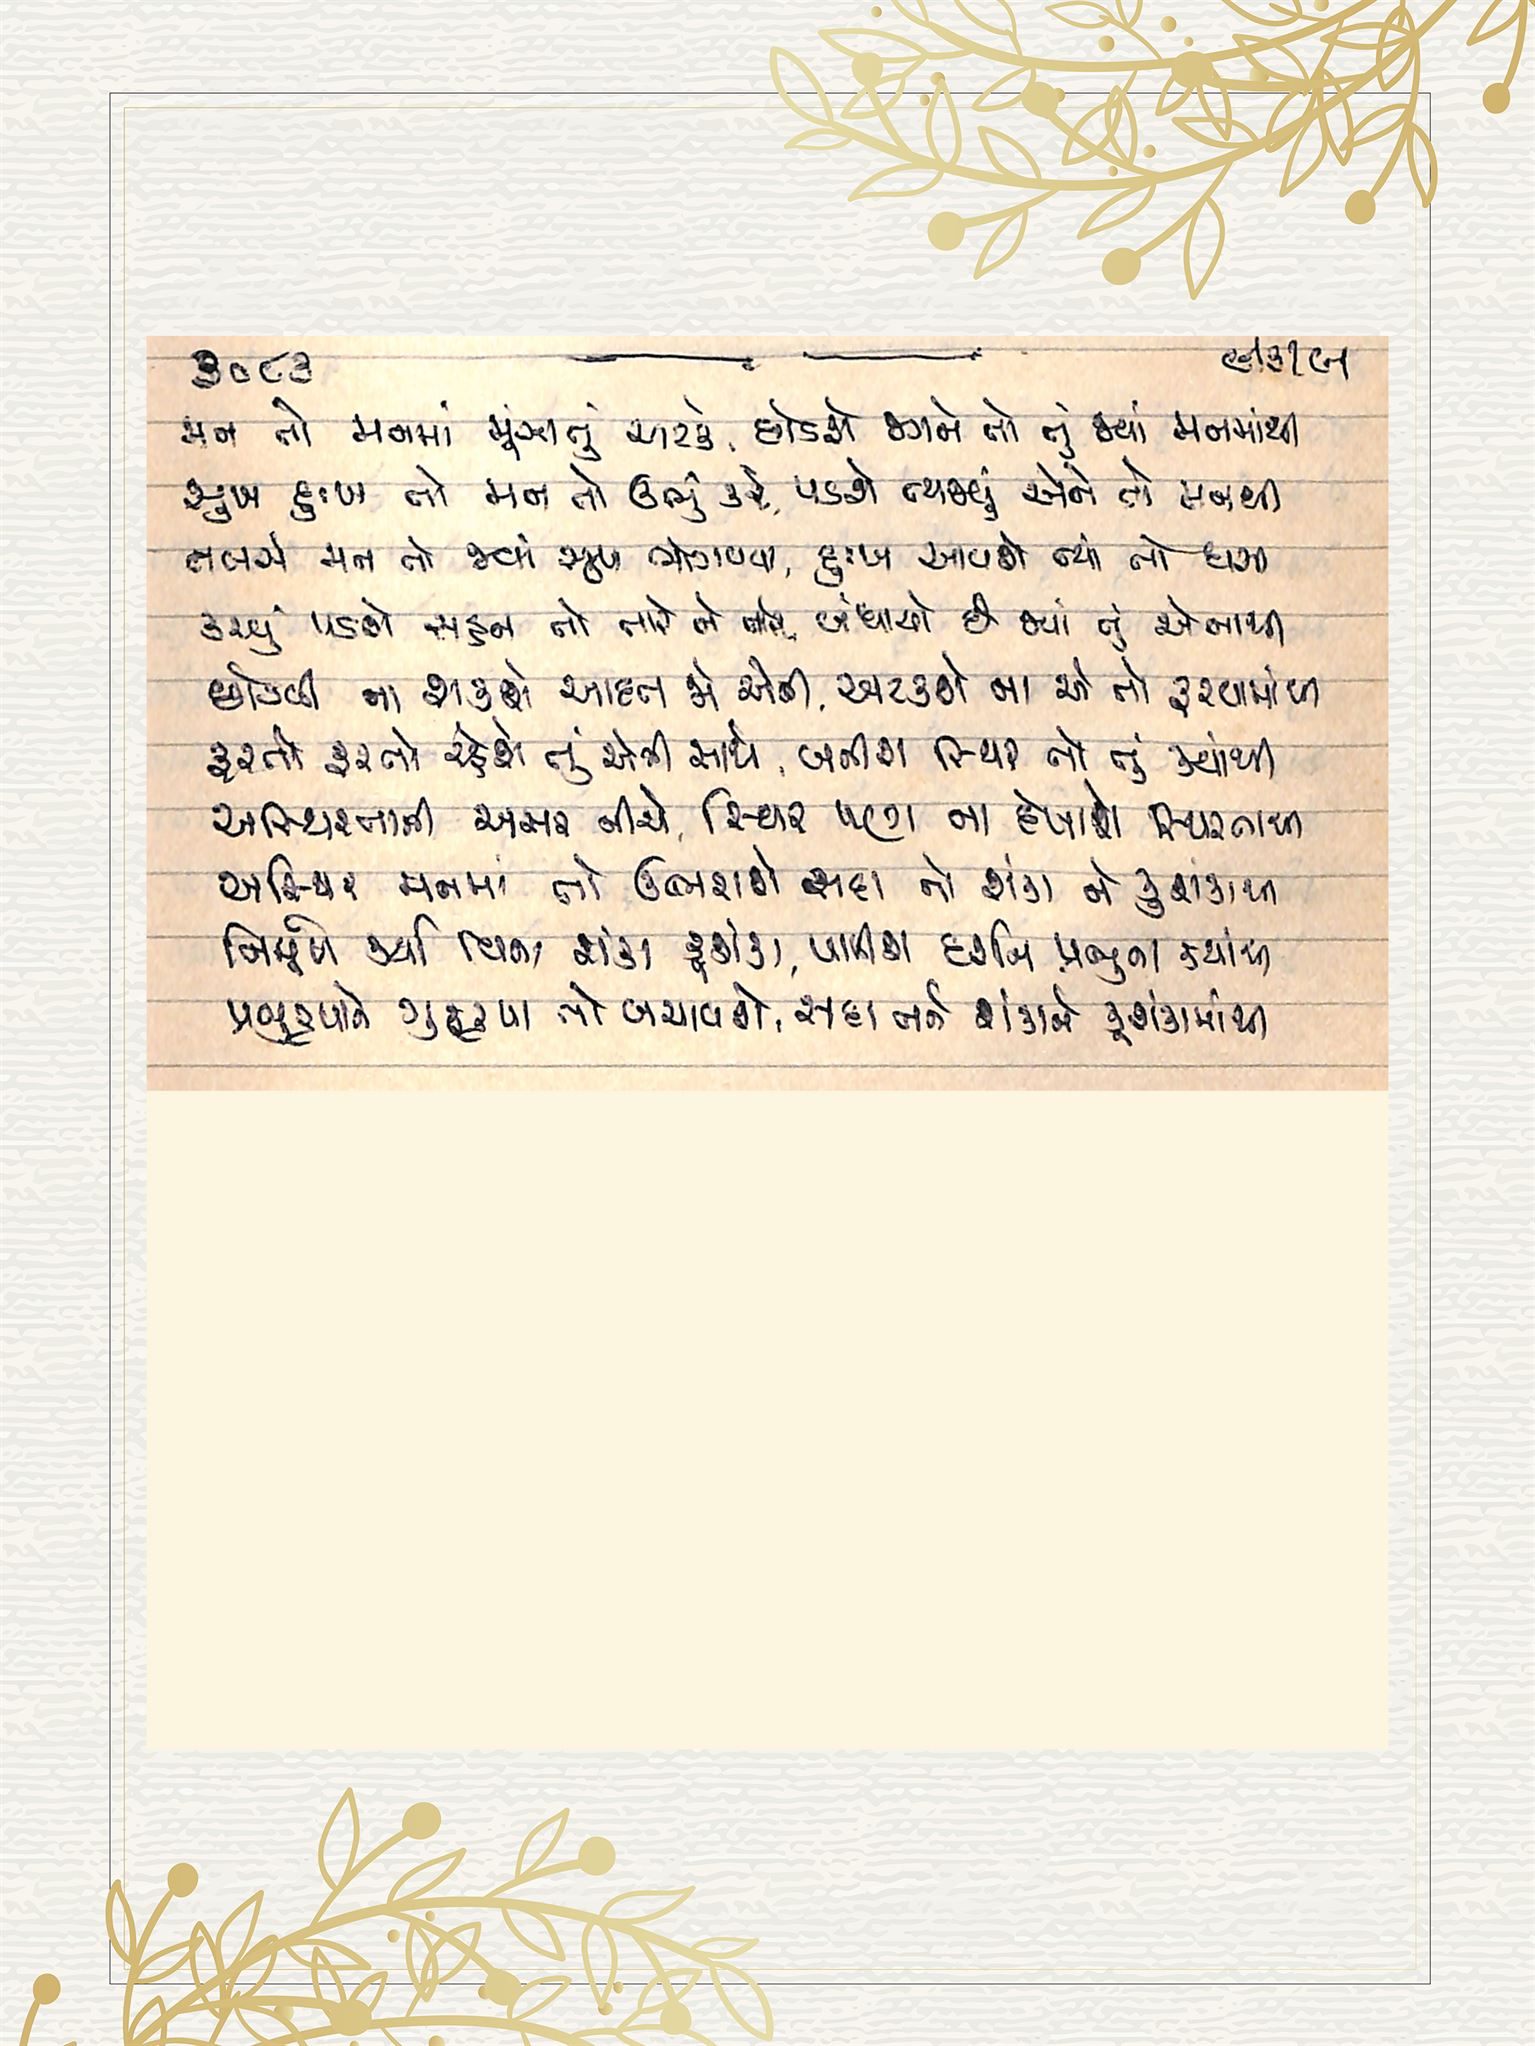 ૩૦૮૩
મન તો મનમાં મૂંઝાતું અટકે, છોડશે જગને તો તું જ્યાં મનમાંથી
સુખ દુઃખ તો મન તો ઉભું કરે, પડશે ત્યજવું એને તો મનથી
તલસે મન તો જ્યાં સુખ ભોગવવા, દુઃખ આવશે ત્યાં તો
કરવું પડશે સહન તો તારે ને તારે, બંધાયો છે જ્યાં તું એનાથી
છોડાવી ના શકશે આદત જો એની, અટકશે ના એ તો ફરવામાંથી
ફરતો ફરતો રહેશે તું એની સાથે, બનીશ સ્થિર તો તું ક્યાંથી
અસ્થિરતાની અસર નીચે, સ્થિર પણ ના દેખાશે સ્થિરતાથી
અસ્થિર મનમાં તો ઉભરાશે સદા તો શંકા ને કુશંકાથી
નિર્મૂળ કર્યા વિના શંકા કુશંકા, પામીશ દર્શન પ્રભુના ક્યાંથી
પ્રભુકૃપાને ગુરુકૃપા તો બચાવશે, સદા તને શંકાને કુશંકામાંથી